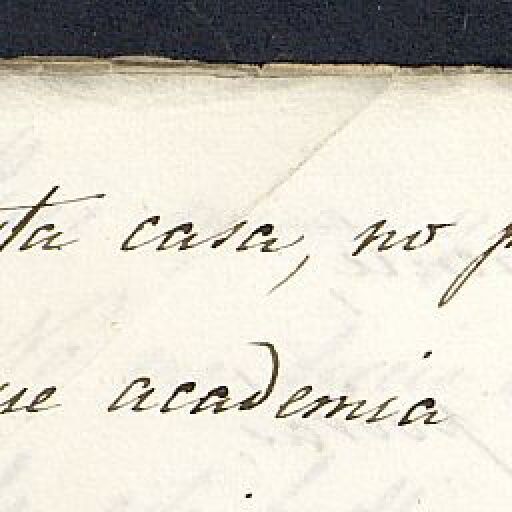 ta casa, no p
ue academia